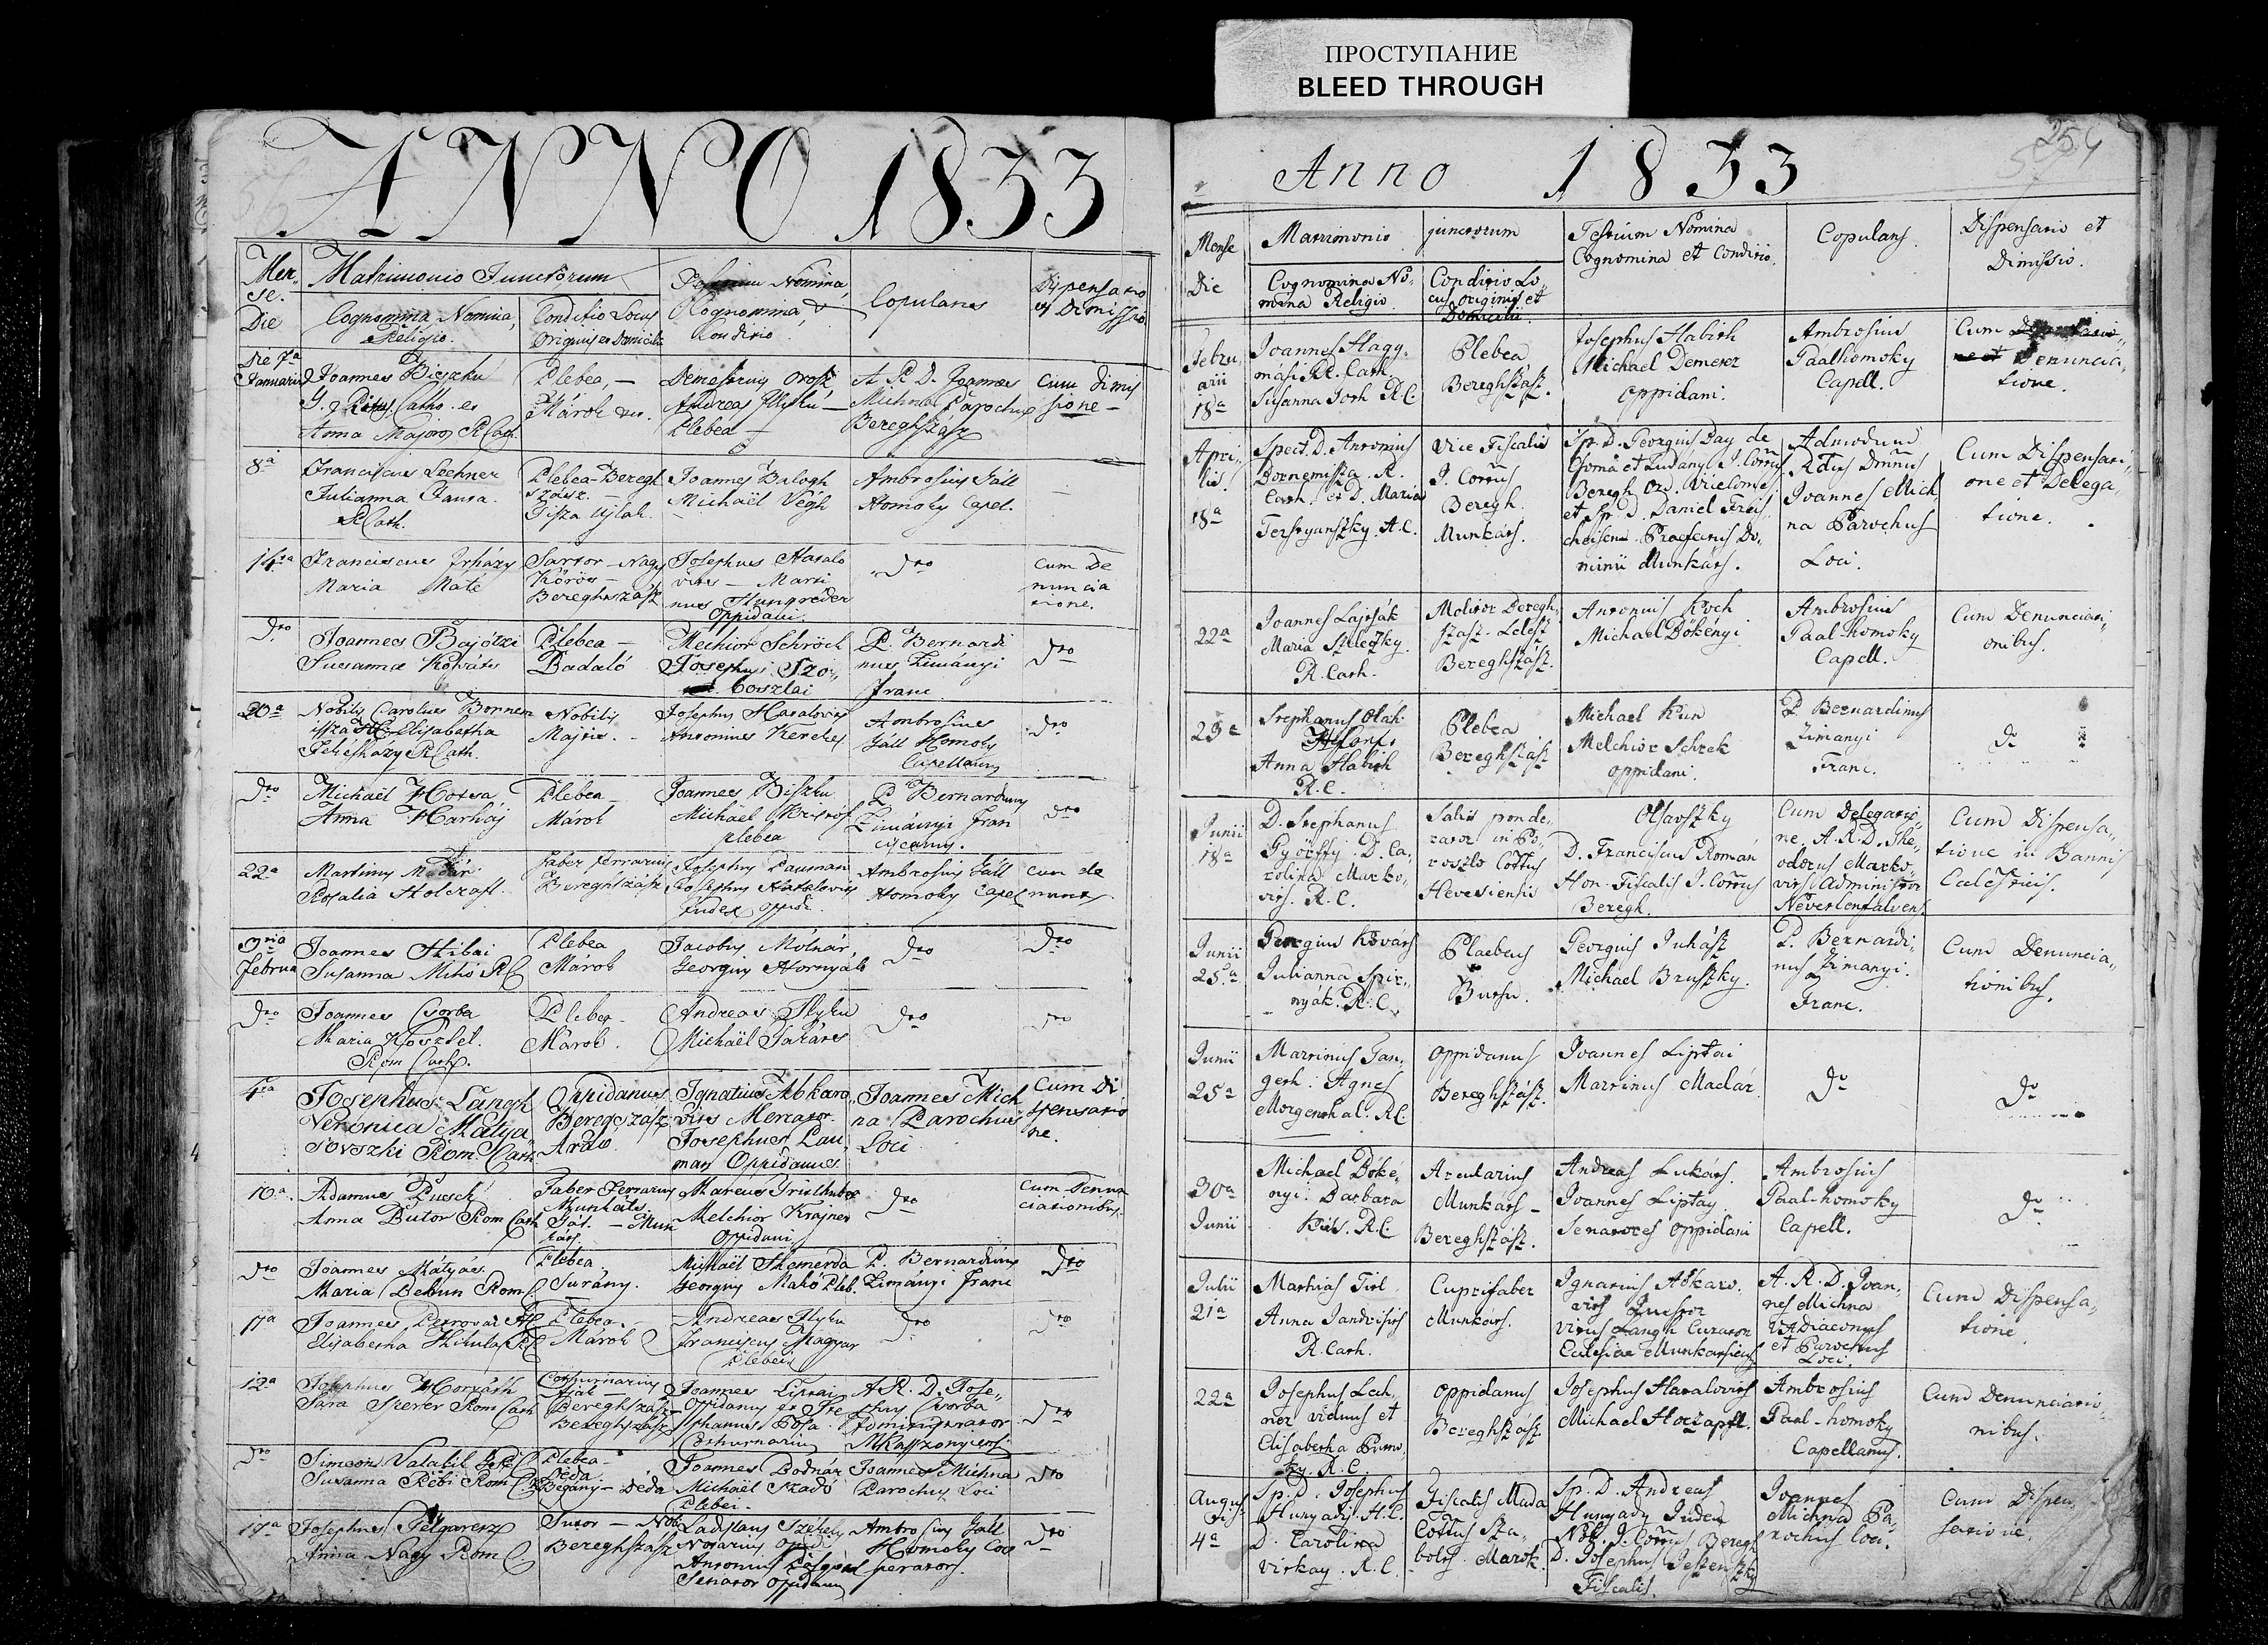 ПРОСТУПАНИЕ
BLEED THROUGH
ANNO 1833
Men
se.
Die
Matrimonio Junctorum
Cognomina Nomina,
Religio.
Conditio Locus
Originis et Domicilii
Nomina,
Cognomina &
Conditio
Copulans
Dispensatio
et Dimissio
Die 7a
Januarii
Joannes Biszku
G. Ritus Catho. et
Anna Majoros R Cath.
Plebea, —
Márok
Demetrius Orosz
Andreas Illyku —
Plebea —
A R D. Joannes
Michna Parochus
Bereghszász
Cum dimis
sione —
8a
Franciscus Lechner
Julianna
R Cath.
Plebea Beregh
szász. —
Tisza Ujlak.
Joannes Balogh
Michaël Végh
Ambrosius Gáll
Homoky Capel.
14ta
Franciscus
Maria Maté
Sartor — Nagy
Körös —
Bereghszász
Josephus Hatalo
vits — Marti
nus Hungreder
Oppidani
Dto
Cum De
nuncia
tione.
Dto
Joannes Bajótzi
Susanna Kováts
Plebea —
Badaló
Melchior Schröck
Josephus Szo
boszlai
P. Bernardi
nus Zimányi
Franc.
Dto
20a
Nobilis Carolus Bornem
issza HC Elisabetha
Fehérházy R Cath.
Nobilis
Majtis. -
Josephus Hatalovits
Antonius Kerekes
Ambrosius
Gáll Homoky
Capellanus
Dto
Dto
Michaël Hotsa
Anna Harháj
Plebea
Marok
Joannes Biszku
Michaël Kristóf
plebea
P. Bernardinus
Zimányi Fran
ciscanus.
Dto
22a
Martinus Madár
Rosalia Holczapfl.
Faber ferrarius
Bereghszász
Josephus Pauman
Josephus Hatalovits
Judex oppidi.
Ambrosius Gáll
Homoky Capel
cum de
nunt.
3tia
Februa
Joannes Hibai
Susanna Mihó R C
Plebea
Márok
Jacobus Mólnár,
Georgius Hornyák
Dto
Dto
Dto
Joannes Csorba
Maria Kosztél.
Rom Cath.
Plebea
Márok.
Andreas Illyku
Michaël Takáts
Dto
Dto
4ta
Josephus Lángh
Veronica Matya
sovszki Rom. Cath
Oppidanus
Beregszász
Ardó
Ignatius Abkaro
vits Mercator
Josephus Pau
man Oppidanus
Joannes Mich
na Parochus
Loci
Cum Di
spensatio
ne.
10a.
Adamus Puschi
Anna Butor Rom Cath
Faber Ferrarius
Munkáts
Gát. — Mun
káts.
Marcus Trislhuber
Melchior Krajner
Oppidani
Dto
Cum Denun
ciationibus.
Dto
Joannes Mátyás.
Maria Debun Rom C
Plebea
Surány.
Michaël Hemerda
Georgius Makó Pleb.
P. Bernardinus
Zimányi Franc
Dto
11a
Joannes Petrovai HC
Elisabetha Mikula R C
Plebea.
Marok
Andreas Illyku
Franciscus Magyar
Plebei
Dto
Dto
12a
Josephus Horváth
Sara Sperer Rom Cath
Cothurnarius
Bereghszász
Bereghszász
Joannes Liptai
Oppidanus et Ste
phanus Pósa.
Cothurnarius
A R. D. Jose
phus Csorba
Administrator
M Kaszonyiensis
Dto
Dto
Simeon Valakil
Susanna Rébi Rom C
Plebea
Déda.
Bégány — Déda
Joannes Bodnár
Michaël Szabó
Plebei.
Joannes Michna
Parochus Loci
Dto
17a
Josephus Felgarerz
Anna Nagy Rom C
Sutor —
Bereghszász
Ladislaus Székely
Notarius oppidi
Antonius
Senator Oppidanus
Ambrosius Gáll
Homoky Coo
perator.
Dto
Anno 1833
254
Mense
Die
Matrimonio
junctorum
Cognomina No
mina Religio
Conditio Lo
cus originis et
Domicilii.
Testium Nomina
Cognomina et Conditio.
Copulans.
Dispensatio et
Dimissio.
Febru
arii
18a
Joannes Hagy
mási R. Cath.
Susanna Josh R.C.
Plebea
Bereghszász.
Josephus Habith
Michael Demeter
oppidani.
Ambrosius
Gaalhomoky
Capell.
Cum
Denuncia
tione.
Apri
lis.
18a
Spect. D. Antonius
Bornemisza. R.
Cath. et D. Maria
Terstyanszky. A.C.
Vice Fiscalis
I. Cottus
Beregh.
Munkáts.
Sp. D. Georgius Bay de
Csoma et Ludány I. Cottus
Beregh Ord. Vicecomes
et Sp. D. Daniel Frei
cheisen Praefectus Do
minii Munkats.
Admodum
Rdus Dominus
Joannes Mich
na Parochus
Loci.
Cum Dispensati
one et Delega
tione.
22a
Joannes Lajsák
Maria Szeleczky.
R. Cath.
Molitor Beregh
szasz - Lelesz
Bereghszász.
Antonius Koch
Michael Bökényi
Ambrosius
Gaal-homoky
Capell.
Cum Denunciati
onibus.
23a
Stephanus Olah.
Anna Habith
R.C.
Plebea
Bereghszász
Michael Kun
Melchior Schrek
oppidani.
P. Bernardinus
Zimanyi
Franc.
do
Junii
18a
D. Stephanus
Györffy. D. Ca
rolina Marko
vits. R. C.
Salis ponde
rator in Po
roszló Cottus
Hevesiensis
Olsavszky
D. Franciscus Román
Hon. Fiscalis I. Cottus
Beregh.
Cum Delegatio
ne, A.R.D. The
odorus Marko
vits Administrator
Nevetlenfalvens.
Cum Dispensa
tione in Bannis
Ecclesticis.
Junii
25a
Georgius Kováts
Julianna Spir
nyák. R.C.
Plaebeus
Butsu.
Georgius Juhász
Michael Bruszky.
P. Bernardi
nus Zimanyi.
Franc.
Cum Denuncia
tionibus.
Junii
25a
Martinus Gan
gerh. Agnes
Morgenthal. R.C.
oppidanus
Bereghszász.
Joannes Liptai
Martinus Madár
do
do
30a
Junii
Michael Böké
nyi. Barbara
Kis. R.C.
Arcularius
Munkáts -
Bereghszász.
Andreas Lukáts.
Joannes Liptay
Senatores oppidani
Ambrosius
Gaal-homoky
Capell.
do
Julii
21a
Mathias Tirl
Anna Jandrisits
R. Cath.
Cuprifaber
Munkáts.
Ignatius Abkaro
vits Quæstor
Vitus Langh Curator
Eclesiae Munkatsiensis
A. R. D. Joan
nes Michna
V.A.Diaconus
et Parochus
Loci.
Cum Dispensa
tione
22a
Josephus Leh
ner viduus et
Elisabetha Prinn
ky. R.C.
oppidanus
Bereghszász
Josephus Hatalovits
Michael Holzapfl.
Ambrosius
Gaal-homoky
Capellanus.
Cum Denunciatio
nibus.
Augus
ti
4a
Sp. D. Josephus
Hunyadi. H.C.
D. Carolina
Virkay. R.C.
Fiscalis Mada
Cottus Sza
bolts. Marok.
Sp. D. Andreas
Hunyady Judex
Nob. I. Cottus Beregh
D. Josephus Jeszenszky
Fiscalis.
Joannes
Michna Pa
rochus loci.
Cum Dispen
satione.